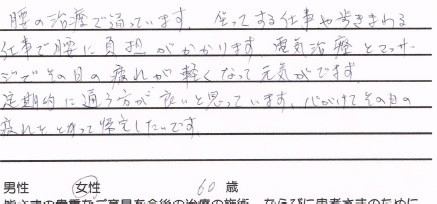 腰の治療で通っています。坐ってする仕事や歩きまわる
仕事で腰に負担がかかります。電気治療とマッサー
ジでその日の疲れが軽くなって元気がでます。
定期的に通う方が良いと思っています。心がけてその日の
疲れをとって帰宅したいです。
男性 女性 60 歳
皆さまの貴重なご意見を今後の治療の施術、ならびに患者さまのために